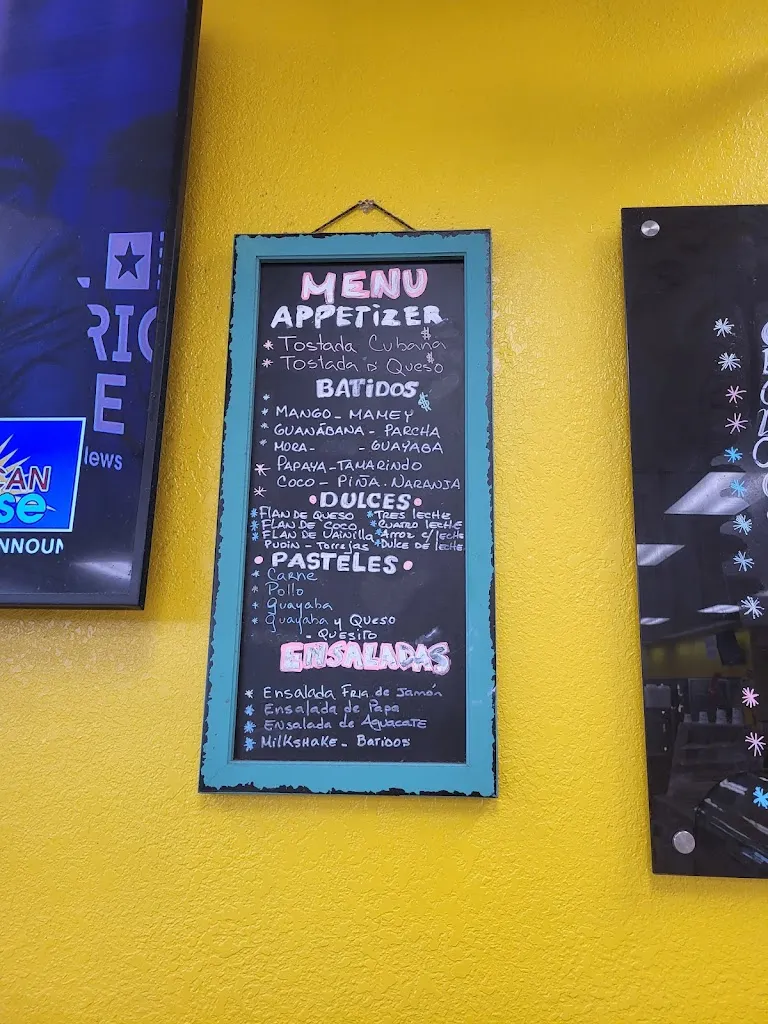 MENU
APPETIZER
* Tostada Cubana $
* Tostada D' Queso $
BATIDOS $
* MANGO - MAMEY
* GUANÁBANA - PARCHA
* MORA - - GUAYABA
* PAPAYA - TAMARINDO
* COCO - PIÑA. NARANJA
• DULCES •
* FLAN DE QUESO * TRES LECHE
* FLAN DE COCO * CUATRO LECHE
* FLAN DE VAINILLA * Arroz c/ leche
PUDIN - Torrejas * DULCE DE LECHE
• PASTELES •
* Carne
* Pollo
* Guayaba
* Guayaba y Queso
- QUESITO
ENSALADAS
* Ensalada Fria de Jamón
* Ensalada de Papa
* Ensalada de AGUACATE
* MILKSHAKE - BATIDOS
RIC
E
News
CAN
se
NNOUN